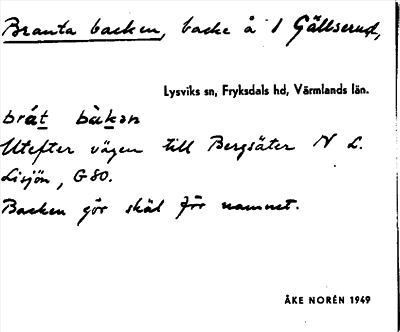 Branta backen, backe å 1 Gällserud,
Lysviks sn, Fryksdals hd, Värmlands län.
brát bàkən
Utefter vägen till Bergsäter N L.
Lisjön, G80.
Backen gör skäl för namnet.
ÅKE NORÉN 1949